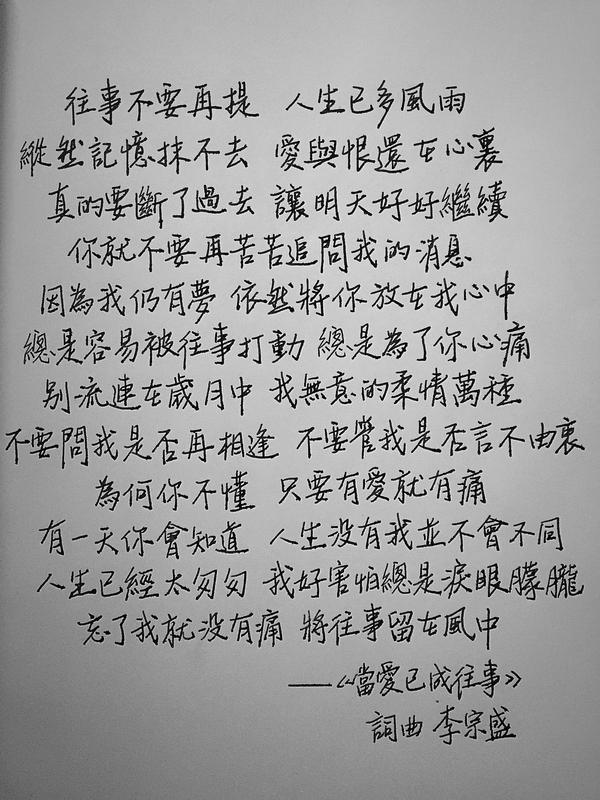 往事不要再提　人生已多風雨
縱然記憶抹不去　愛與恨還在心裏
真的要斷了過去　讓明天好好繼續
你就不要再苦苦追問我的消息
因為我仍有夢　依然將你放在我心中
總是容易被往事打動　總是為了你心痛
別流連在歲月中　我無意的柔情萬種
不要問我是否再相逢　不要管我是否言不由衷
為何你不懂　只要有愛就有痛
有一天你會知道　人生没有我並不會不同
人生已經太匆匆　我好害怕總是淚眼朦朧
忘了我就没有痛　將往事留在風中
——《當愛已成往事》
詞曲 李宗盛